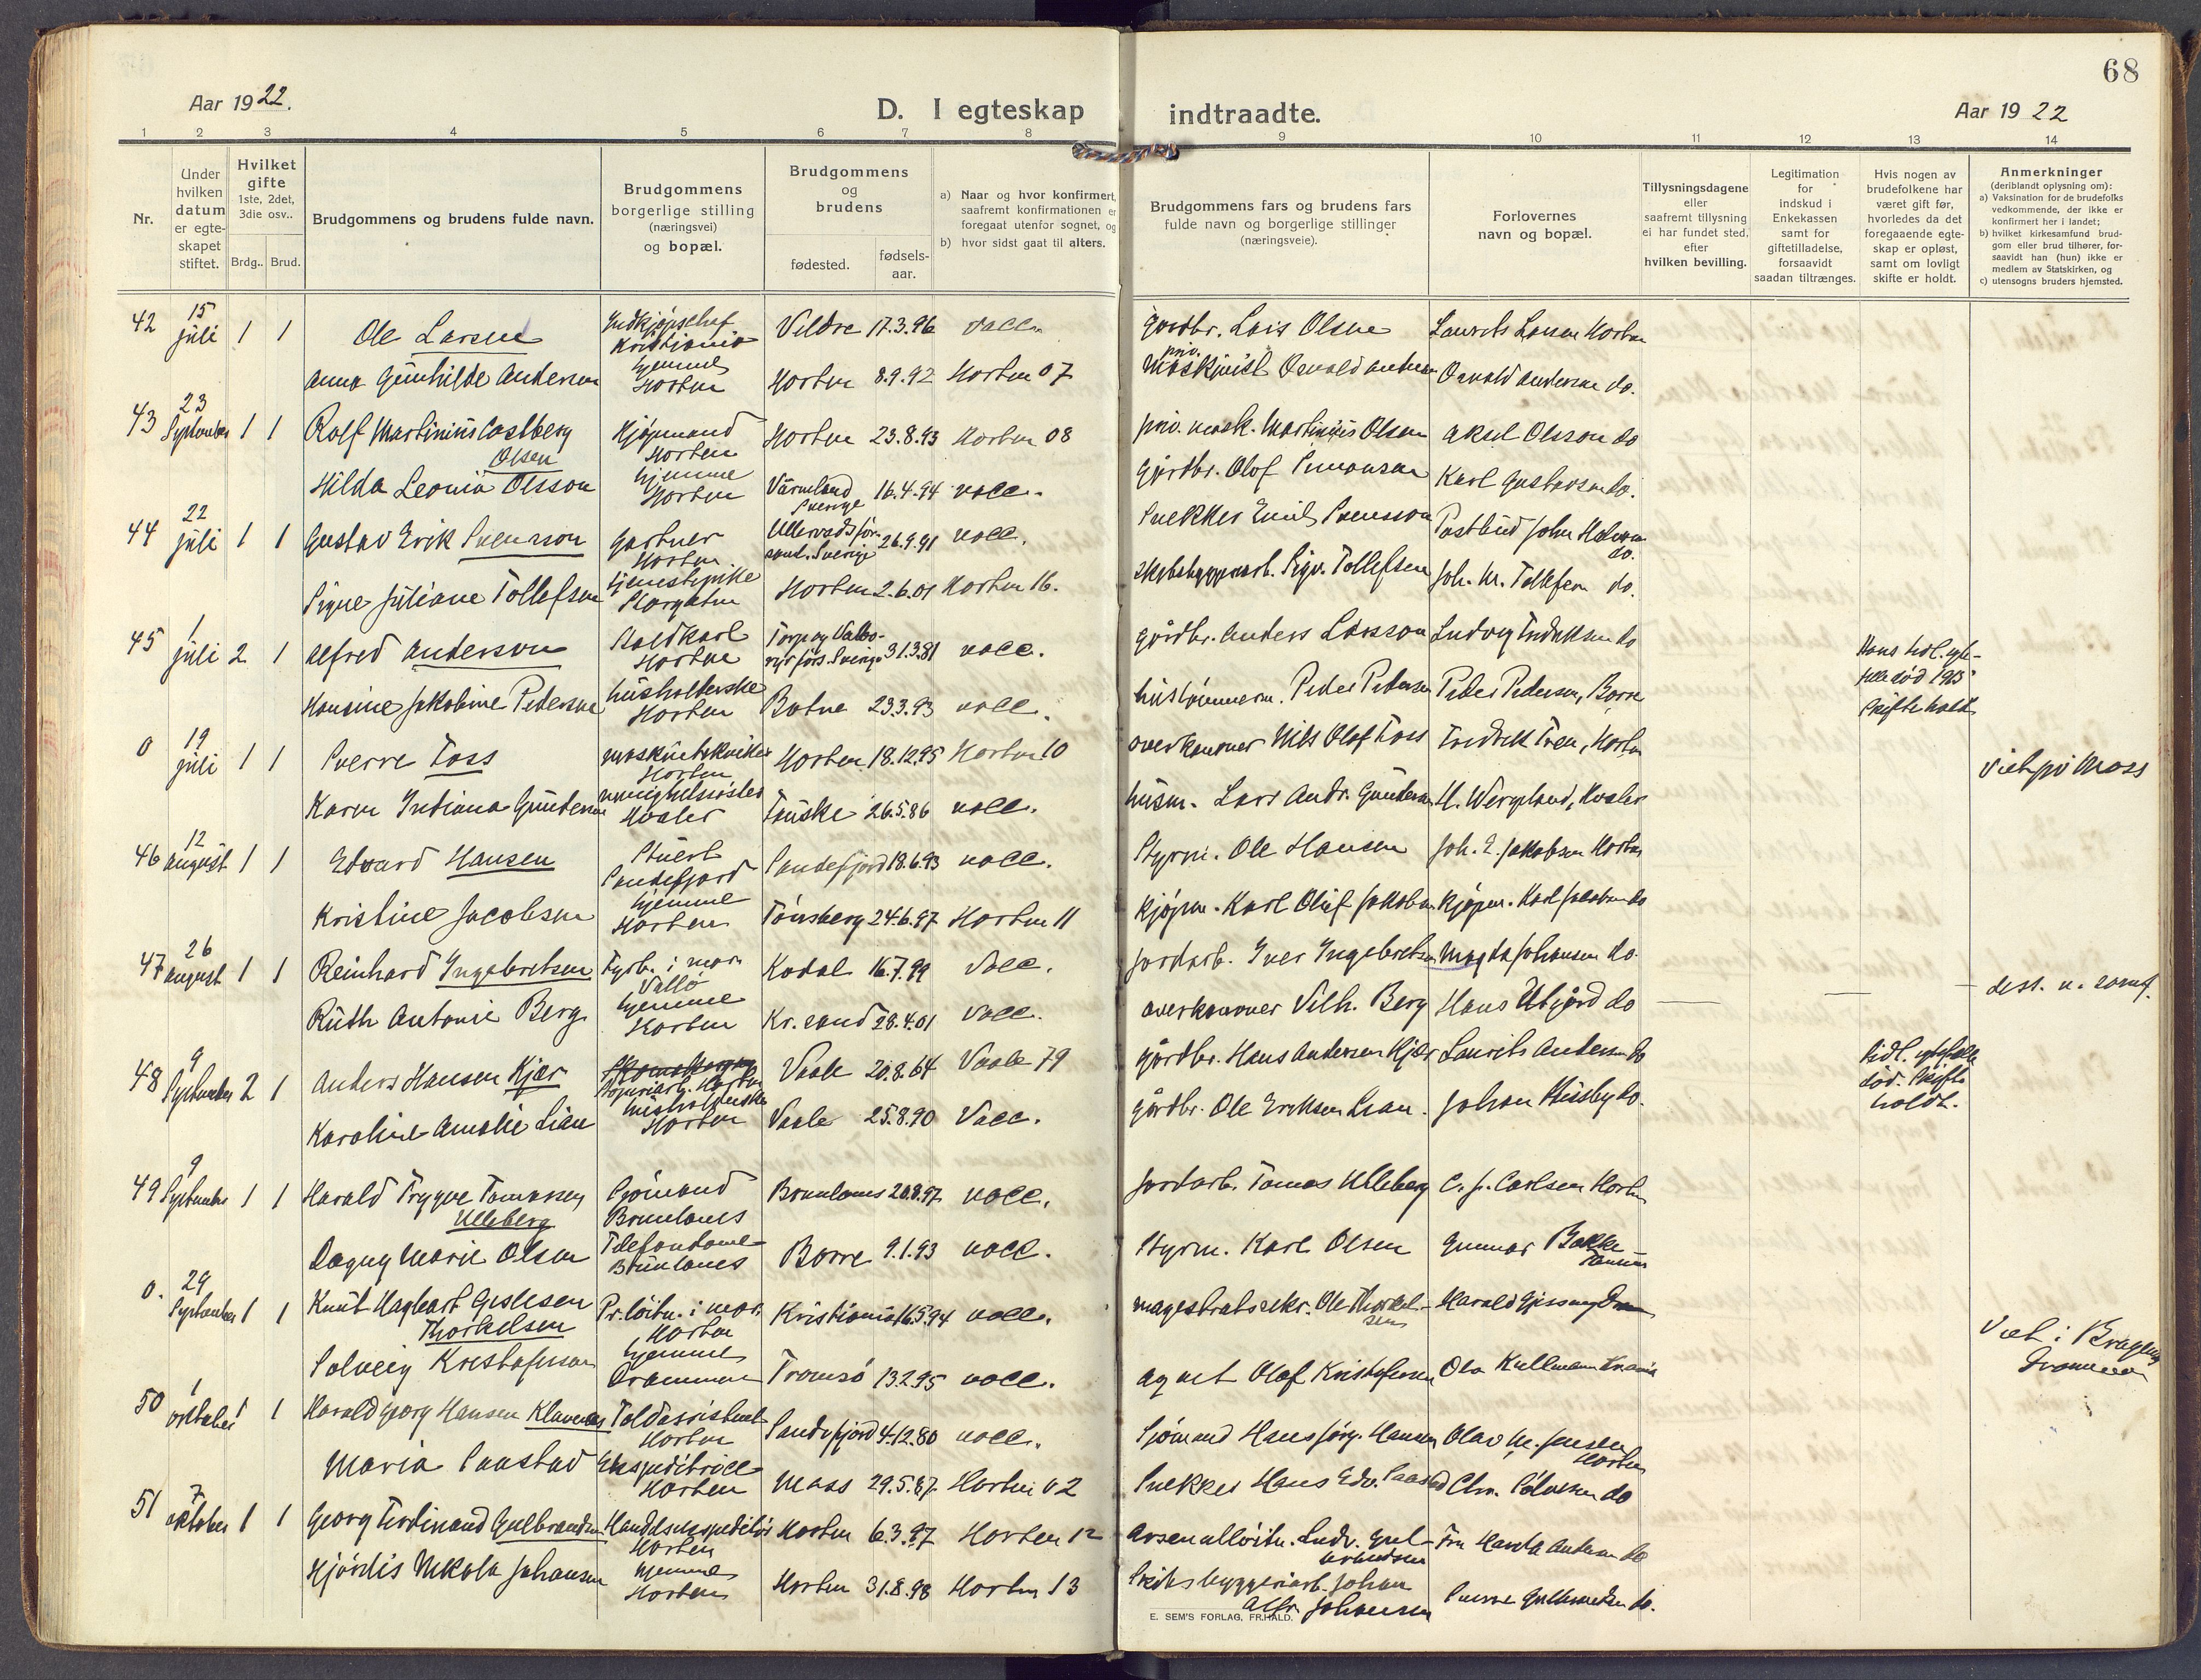 68
Aar 1922.
D. I egteskap indtraadte.
Aar 1922
1 2 3 4 5 6 7 8 9 10 11 12 13 14
Nr.
Under hvilken datum er egteskapet stiftet.
Hvilket gifte 1ste, 2det, 3die osv..
Brdg.. Brud.
Brudgommens og brudens fulde navn.
Brudgommens borgerlige stilling (næringsvei) og bopæl.
Brudgommens og brudens
fødested.
fødsels-aar.
a) Naar og hvor konfirmert, saafremt konfirmationen er foregaat utenfor sognet, og
b) hvor sidst gaat til alters.
Brudgommens fars og brudens fars fulde navn og borgerlige stillinger (næringsveie).
Forlovernes navn og bopæl.
Tillysningsdagene eller saafremt tillysning ei har fundet sted, efter hvilken bevilling.
Legitimation for indskud i Enkekassen samt for giftetilladelse, forsaavidt saadan tiltrænges.
Hvis nogen av brudefolkene har været gift før, hvorledes da det foregaaende egteskap er opløst, samt om lovligt skifte er holdt.
Anmerkninger (deriblandt oplysning om):
a) Vaksination for de brudefolks vedkommende, der ikke er konfirmert her i landet;
b) hvilket kirkesamfund brudgom eller brud tilhører, forsaavidt han (hun) ikke er medlem av Statskirken, og
c) utensogns bruders hjemsted.
42 15 juli 1 1 Ole Larsen Indkjøpschef Kristiania Vildre 17.3.96 vacc. Gårdbr. Lars Olsen Laurits Larsen Horten
Anna Gunhilde Andersen hjemme Horten Horten 8.9.92 Horten 07 priv. Maskinist Osvald Andersen Osvald Andersen do.
43 23 September 1 1 Rolf Martinius Castberg Olsen Kjøpmand Horten Horten 23.8.93 Horten 08 priv. mask. Martinius Olsen Aksel Olsson do
Hilda Leonia Olsson hjemme Horten Värmland Sverige 16.4.94 vacc. Gårdbr. Olof Simonsen Karl Gustavsen do.
44 22 juli 1 1 Gustav Erik Svensson Gartner Horten Sverige 26.9.91 vacc. Snekker Emil Svensson Postbud John Halvorsen do.
Signe Juliane Tollefsen tjenestepike Storgaten Horten 2.6.01 Horten 16. Sigv. Tollefsen Joh. M. Tollefsen do.
45 1 juli 2 1 Alfred Anderson Stuldkarl Horten Sverige 31.3.81 vacc. gårdbr. Anders Larsson Ludvig Fredriksen do
Hans tidl. egtefelle død 1915 Skifte holdt
Hansine Jakobine Pedersen husholderske Horten Botne 23.3.93 vacc. hustømmerm. Peder Pedersen Peder Pedersen, Borre
0 19 juli 1 1 Sverre Foss maskintekniker Horten Horten 18.12.95 Horten 10 overkanoner Nils Olaf Foss Fredrik Foss, Horten Viet på Moss
Karen Indiana Gundersen menighetssøster Hvaler Fauske 26.5.86 vacc. husm. Lars Andr. Gundersen H. Wergeland, Hvaler
46 12 august 1 1 Edvard Hansen Stuert Sandefjord Sandefjord 18.6.93 vacc. Styrm. Ole Hansen Joh. E. Jakobsen Horten
Kristine Jacobsen hjemme Horten Tønsberg 24.6.97 Horten 11 kjøpm. Karl Oluf Jakobsen kjøpm. Karl Jakobsen do
47 26 august 1 1 Reinhard Ingebretsen Fyrb. i mar. Vallø Kodal 16.7.99 Vacc. jordarb. Iver Ingebretsen Magda Johansen do.
Ruth Antonie Berg hjemme Horten Kr.sand 28.4.01 vacc. overkanoner Vilh. Berg Hans Ubgård do
diss. u. samf.
48 9 September 2 1 Anders Hansen Kjær Horten Vaale 20.8.64 Vaale 79 gårdbr. Hans Andersen Kjær Laurits Andersen do
tidl. egtefelle død. Skifte holdt.
Karoline Amalie Lian husholderske Horten Vaale 25.8.90 Vacc. gårdbr. Ole Eriksen Lian. Johan Husby do.
49 9 September 1 1 Harald Trygve Tomassen Ulleberg Sjømand Brunlanes Brunlanes 20.8.97 vacc. jordarb. Tomas Ulleberg C. J. Carlsen Horten
Dagny Marie Olsen Telefondame Brunlanes Borre 9.1.93 vacc. Styrm. Karl Olsen Gunnar Bakke
0. 29 September 1 1 Knut Hagbart Gislesen Thorkelsen Pr. løitn. i mar. Horten Kristiania 16.5.94 vacc. magestratssekr. Ole Thorkelsen Harald
Viet i Bragernes Drammen
Solveig Kristofersen hjemme Drammen Tromsø 13.2.95 vacc. agent Olaf Kristofersen Ola Kullmann
50 1 oktober 1 1 Harald Georg Hansen Klavenæs Toldassistent Horten Sandefjord 4.12.80 vacc. Sjømand Hans Jørg. Hansen Olav M. Jensen Horten
Maria Saastad Ekspeditrice Horten Moss 29.5.87. Horten 02 Snekker Hans Edv. Saastad Chr. Sølvesen do
51 7 oktober 1 1 Georg Ferdinand Gulbrandsen Handelsekspeditør Horten Horten 6.3.97 Horten 12 Arsenalløitn. Ludv. Gulbrandsen Fru Harda Andersen do
Hjørdis Nikola Johansen hjemme Horten Horten 31.8.98 Horten 13 Skibsbyggeriarb. Johan Alfr. Johansen Sverre Gulbrandsen do.
E. SEM'S FORLAG, FR.HALD.